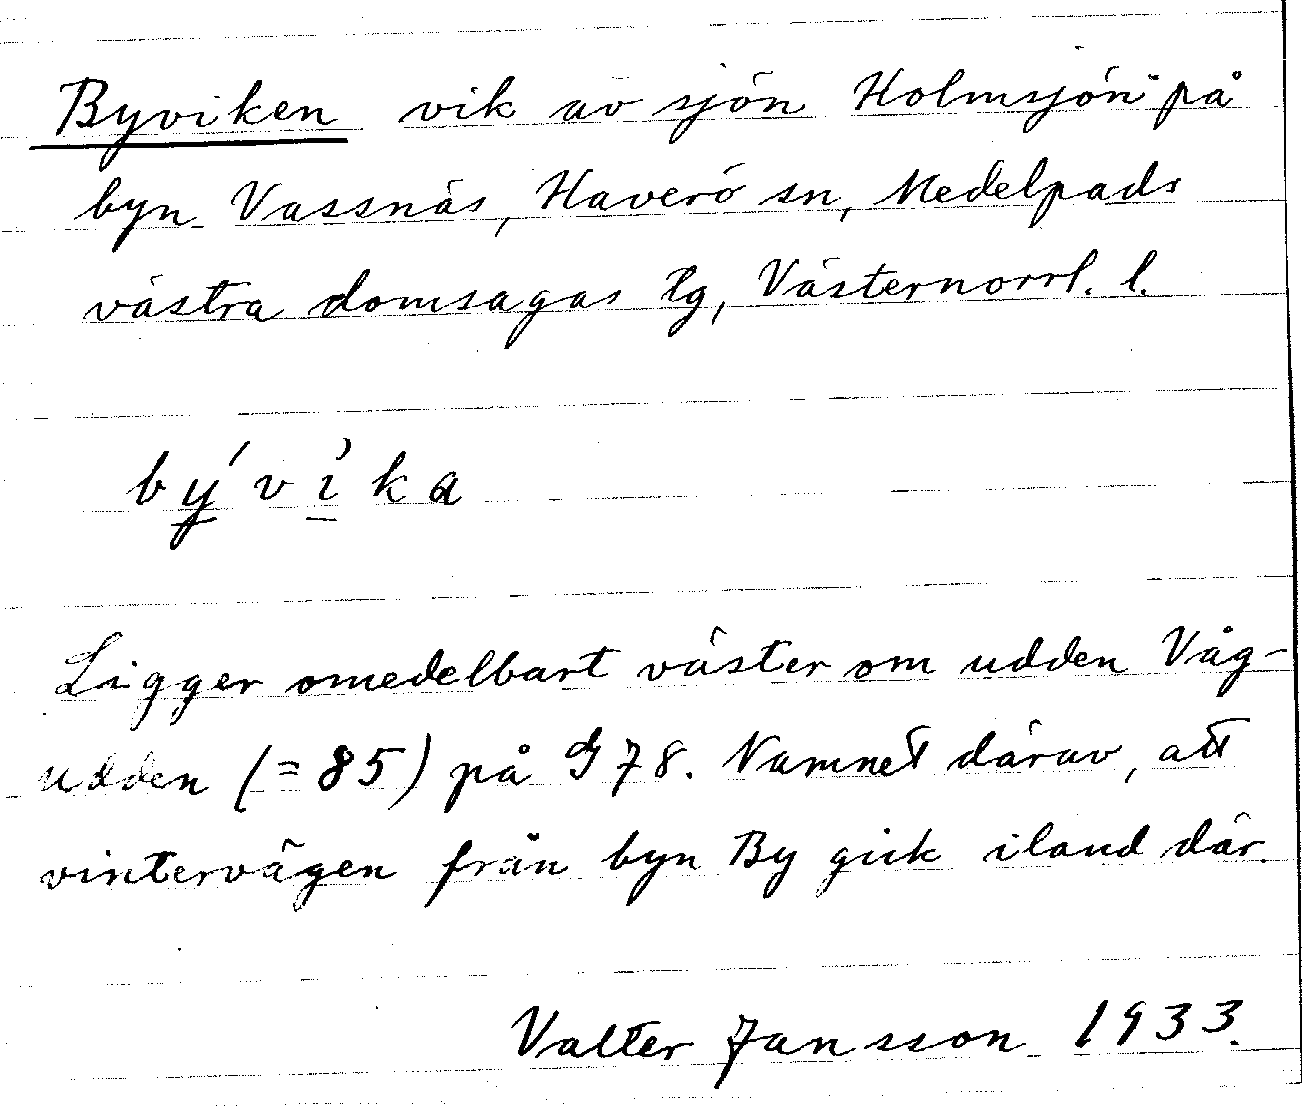 Byviken vik av sjön Holmsjön på
byn Vassnäs, Haverö sn, Medelpads
västra domsagas tg, Västernorrl. l.
bývìka
Ligger omedelbart väster om udden Våg-
udden (= 85) på G 78. Namnet därav, att
vintervägen från byn By gick iland där.
Valter Jansson 1933.